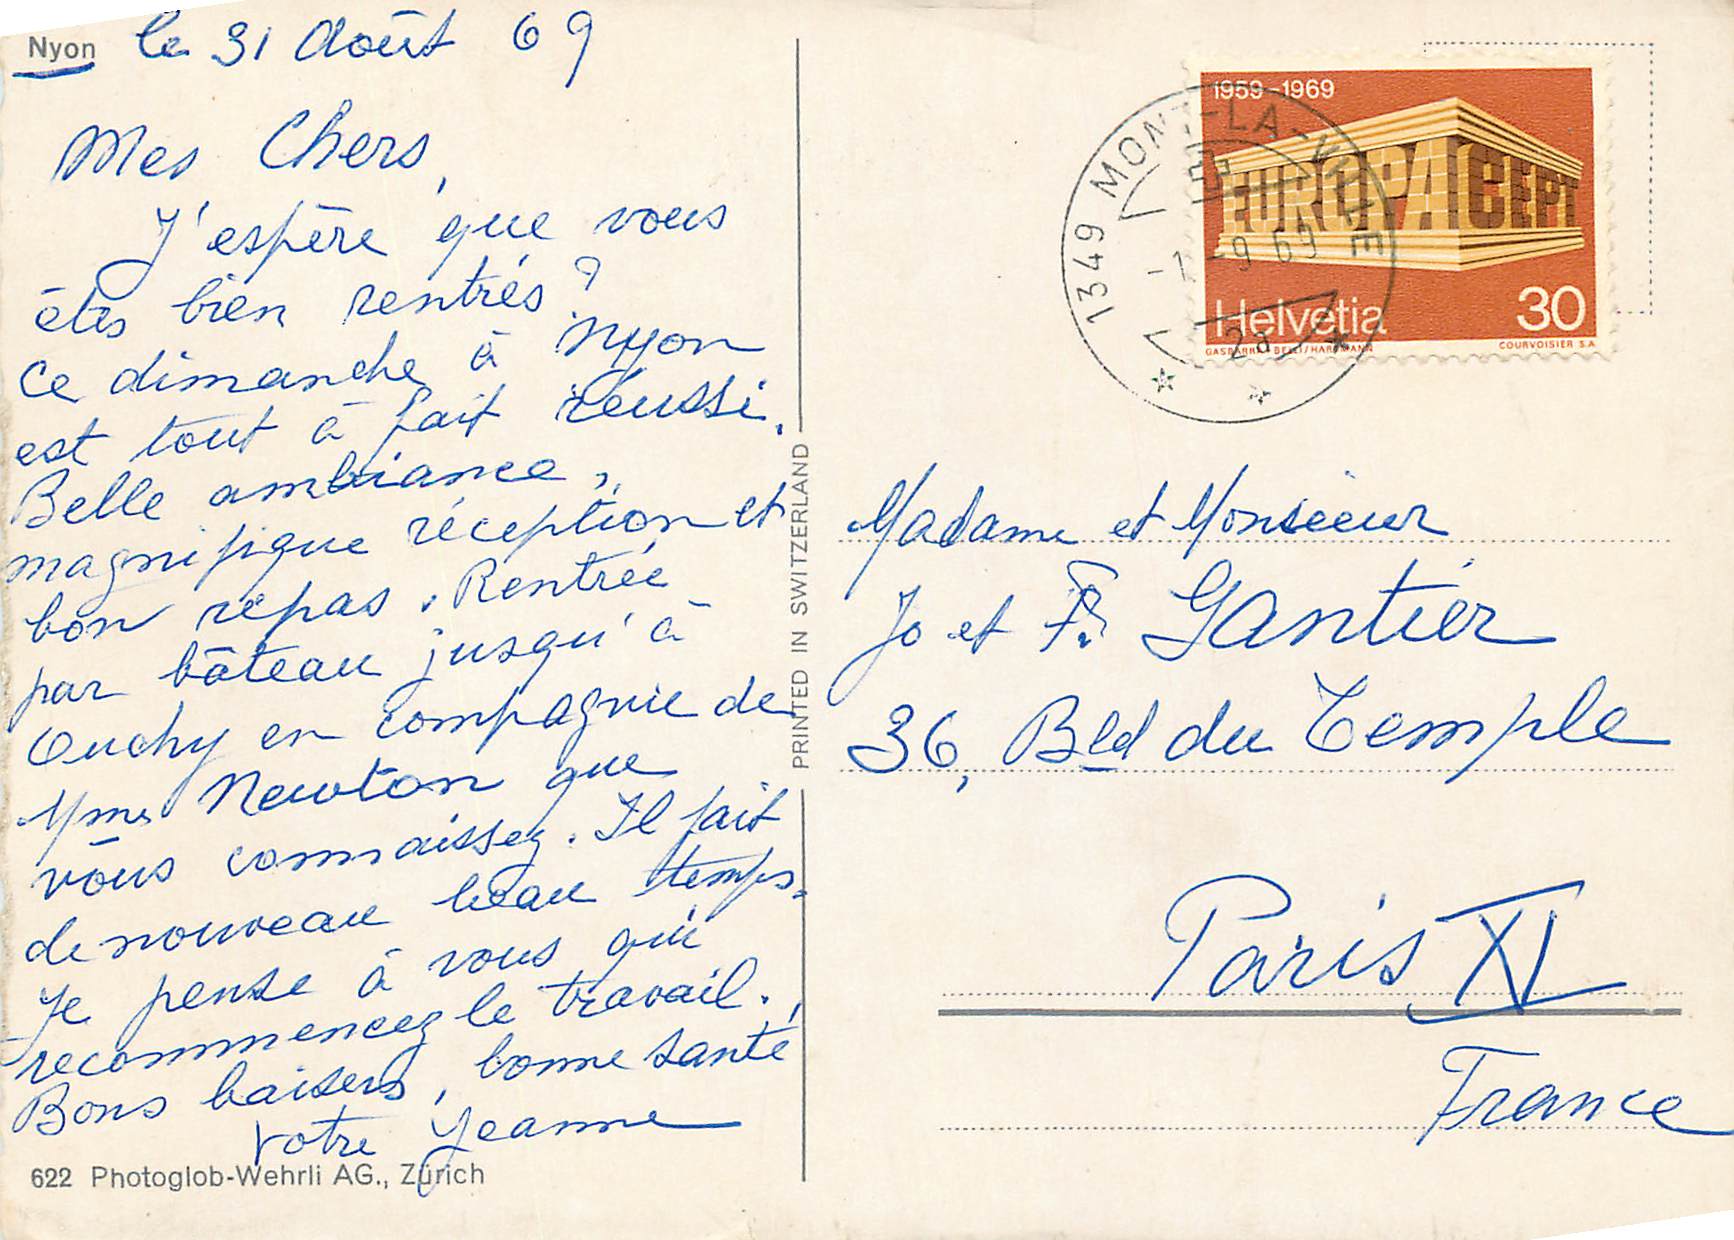 Nyon le 31 Août 69
Mes Chers,
J'espère que vous
êtes bien rentrés?
Ce dimanche à Nyon
est tout à fait réussi.
Belle ambiance,
magnifique réception et
bon repas. Rentrée
par bâteau jusqu'à
Ouchy en compagnie de
Mme Newton que
vous connaissez. Il fait
de nouveau beau temps.
Je pense à vous qui
recommencez le travail.
Bons baisers, bonne santé,
votre Jeanne
622 Photoglob-Wehrli AG., Zürich
PRINTED IN SWITZERLAND
1959-1969
EUROPA CEPT
Helvetia 30
COURVOISIER S.A.
1349 MONT-LA-VILLE
-1.-9 69
Madame et Monsieur
Jo et Fr. Gantier
36, Bld du Temple
Paris XI
France